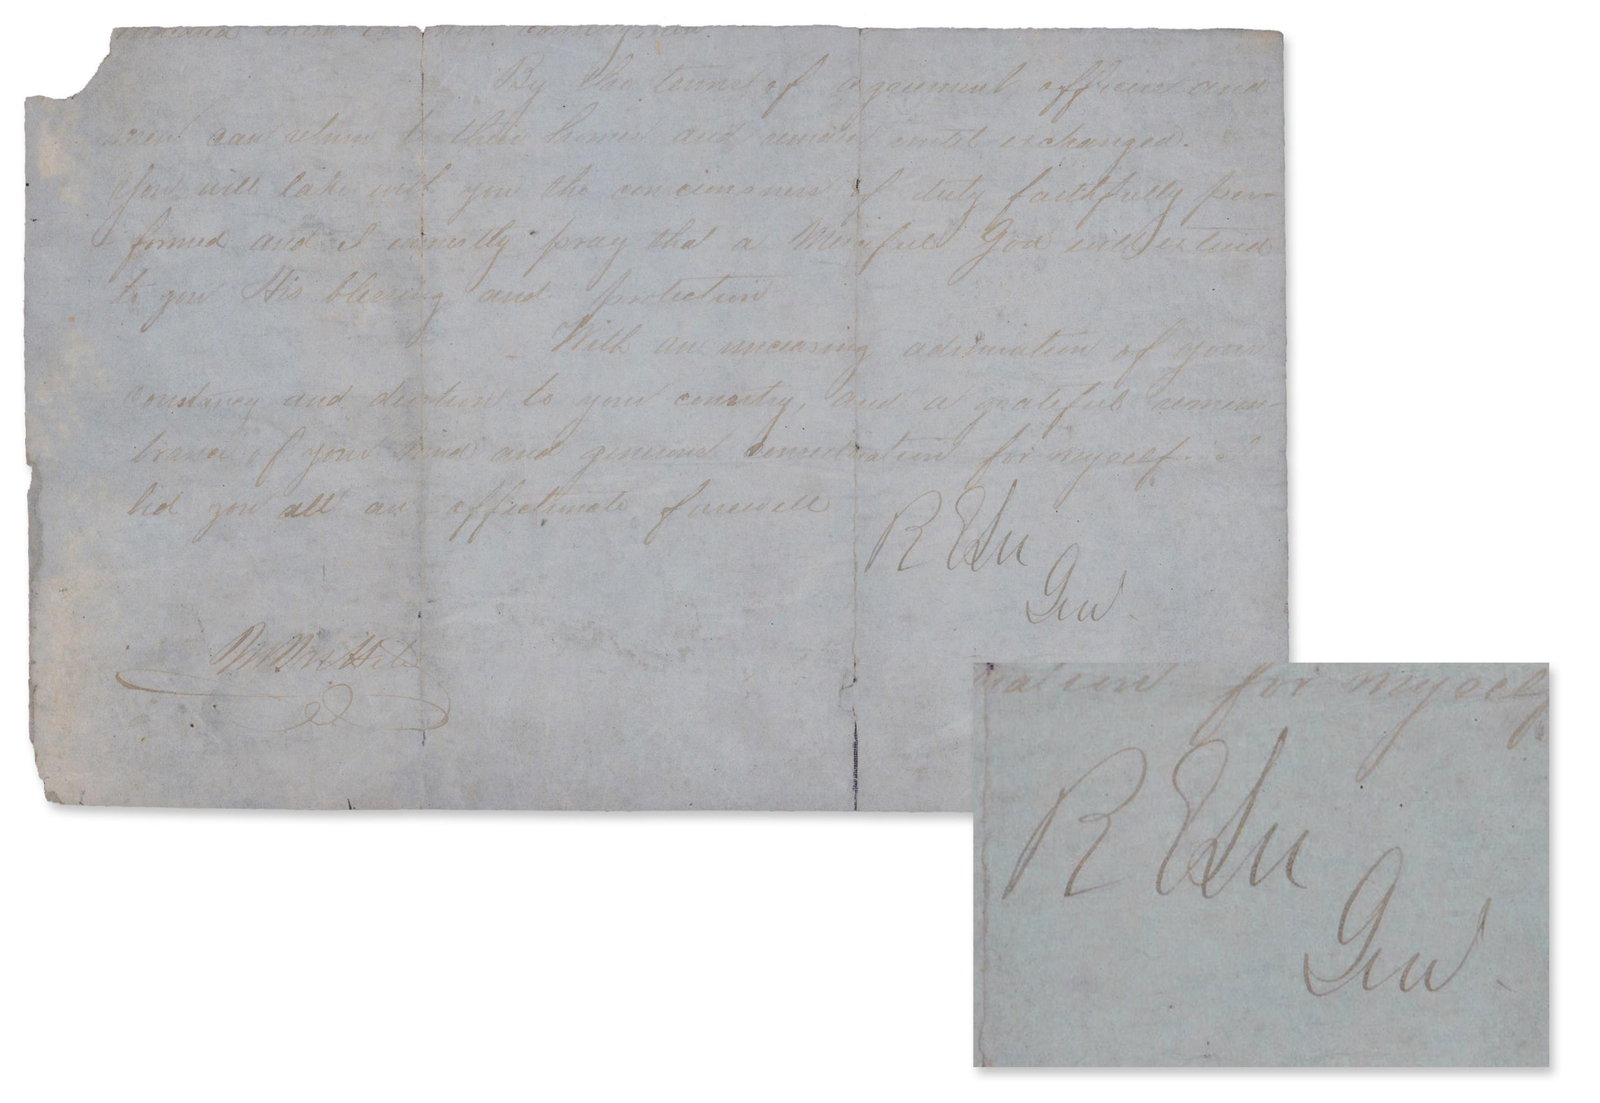 endeared them to their countrymen
By the terms of agreement officers and
men can return to their homes and remain until exchanged.
You will take with you the consciousness of duty faithfully per-
formed and I earnestly pray that a Merciful God will extend
to you His blessing and protection
With an unceasing admiration of your
constancy and devotion to your country, and a grateful remem-
brance of your kind and generous consideration for myself I
bid you all an affectionate farewell
R E Lee
Genl.
ration for myself
R E Lee
Genl.